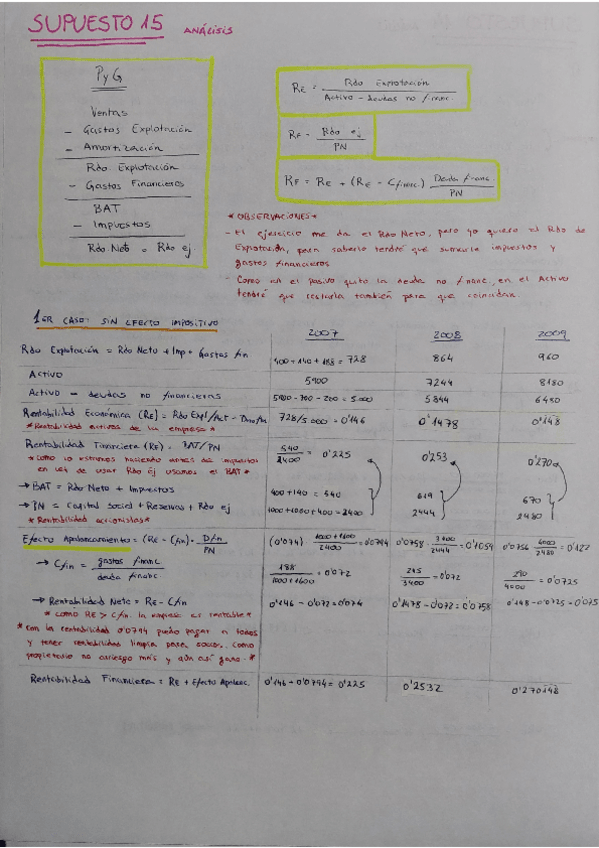 SUPUESTO 15 ANÁLISIS
PyG
Ventas
- Gastos Explotación
- Amortización
Rdo Explotación
- Gastos Financieros
BAT
- Impuestos
Rdo. Neto = Rdo ej
RE = Rdo Explotación / Activo - deudas no financ.
RF = Rdo ej / PN
RF = RE + (RE - Cfinanc.) Deuda financ. / PN
*OBSERVACIONES*
- El ejercicio me da el Rdo Neto, pero yo quiero el Rdo de
Explotación, para saberlo tendré que sumarle impuestos y
gastos financieros
- Como en el pasivo quito la deuda no financ, en el Activo
tendré que restarla también para que coincidan.
1ER CASO: SIN EFECTO IMPOSITIVO
2007 2008 2009
Rdo Explotación = Rdo Neto + Imp + Gastos fin 400+140+188 = 728 864 960
Activo 5900 7244 8180
Activo - deudas no financieras 5900-700-200 = 5.000 5844 6480
Rentabilidad Económica (RE) = Rdo Expl/Act - Dno fin 728/5.000 = 0'146 0'1478 0'148
*Rentabilidad activos de la empresa*
Rentabilidad Financiera (RF) = BAT/PN 540/2400 = 0'225 0'253 0'270
*como lo estamos haciendo antes de impuestos
en vez de usar Rdo Ej usamos el BAT*
→ BAT = Rdo Neto + Impuestos 400+140 = 540 619 670
→ PN = Capital Social + Reservas + Rdo ej 1000+1000+400 = 2400 2444 2480
*Rentabilidad accionistas*
Efecto Apalancamiento = (RE - Cfin) · D fin / PN (0'074) · 1000+1600 / 2400 = 0'0794 0'0758 · 3400/2444 = 0'1054 0'0756 · 4000/2480 = 0'122
→ C/fin = gastos financ / deuda financ. 188 / 1000+1600 = 0'072 245/3400 = 0'072 290/4000 = 0'0725
→ Rentabilidad Neta = RE - C/fin 0'146 - 0'072 = 0'074 0'1478-0'072 = 0'0758 0'148-0'0725 = 0'075
*como RE > C/fin. la empresa es rentable*
*con la rentabilidad 0'0794 puedo pagar a todos
y tener rentabilidad limpia para socios, como
propietario no arriesgo más y aún así gano.*
Rentabilidad Financiera = RE + Efecto Apalanc. 0'146 + 0'0794 = 0'225 0'2532 0'270148